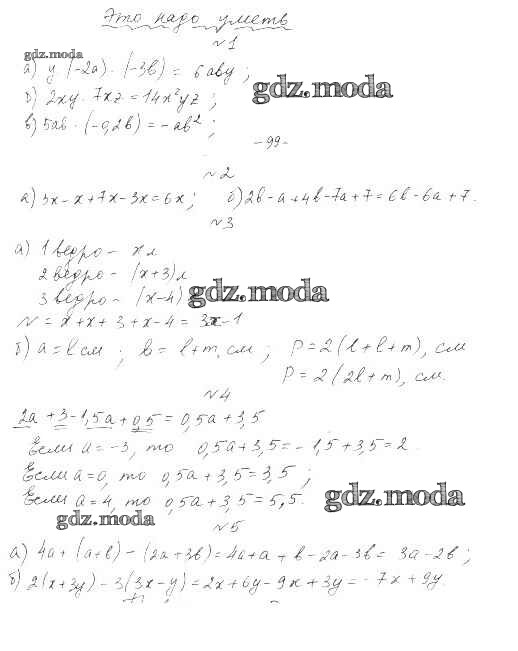 Это надо уметь
№1
gdz.moda
а) y (-2a) · (-3b) = 6aby ;
б) 2xy · 7xz = 14x²yz ;
gdz.moda
в) 5ab · (-0,2b) = - ab² ;
- 99 -
№2
а) 3x - x + 7x - 3x = 6x ; б) 2b - a + 4b - 7a + 7 = 6b - 6a + 7.
№3
а) 1 ведро - x л
2 ведро - (x+3) л
3 ведро - (x-4) gdz.moda
N = x + x + 3 + x - 4 = 3x - 1
б) a = l см ; b = l + m, см ; P = 2 (l + l + m), см
P = 2 (2l + m), см.
№4
2a + 3 - 1,5a + 0,5 = 0,5a + 3,5
Если a = -3, то 0,5a + 3,5 = - 1,5 + 3,5 = 2.
Если a = 0, то 0,5a + 3,5 = 3,5 ;
Если a = 4, то 0,5a + 3,5 = 5,5. gdz.moda
gdz.moda
№5
а) 4a + (a+b) - (2a+3b) = 4a + a + b - 2a - 3b = 3a - 2b ;
б) 2(x+3y) - 3(3x-y) = 2x + 6y - 9x + 3y = - 7x + 9y.